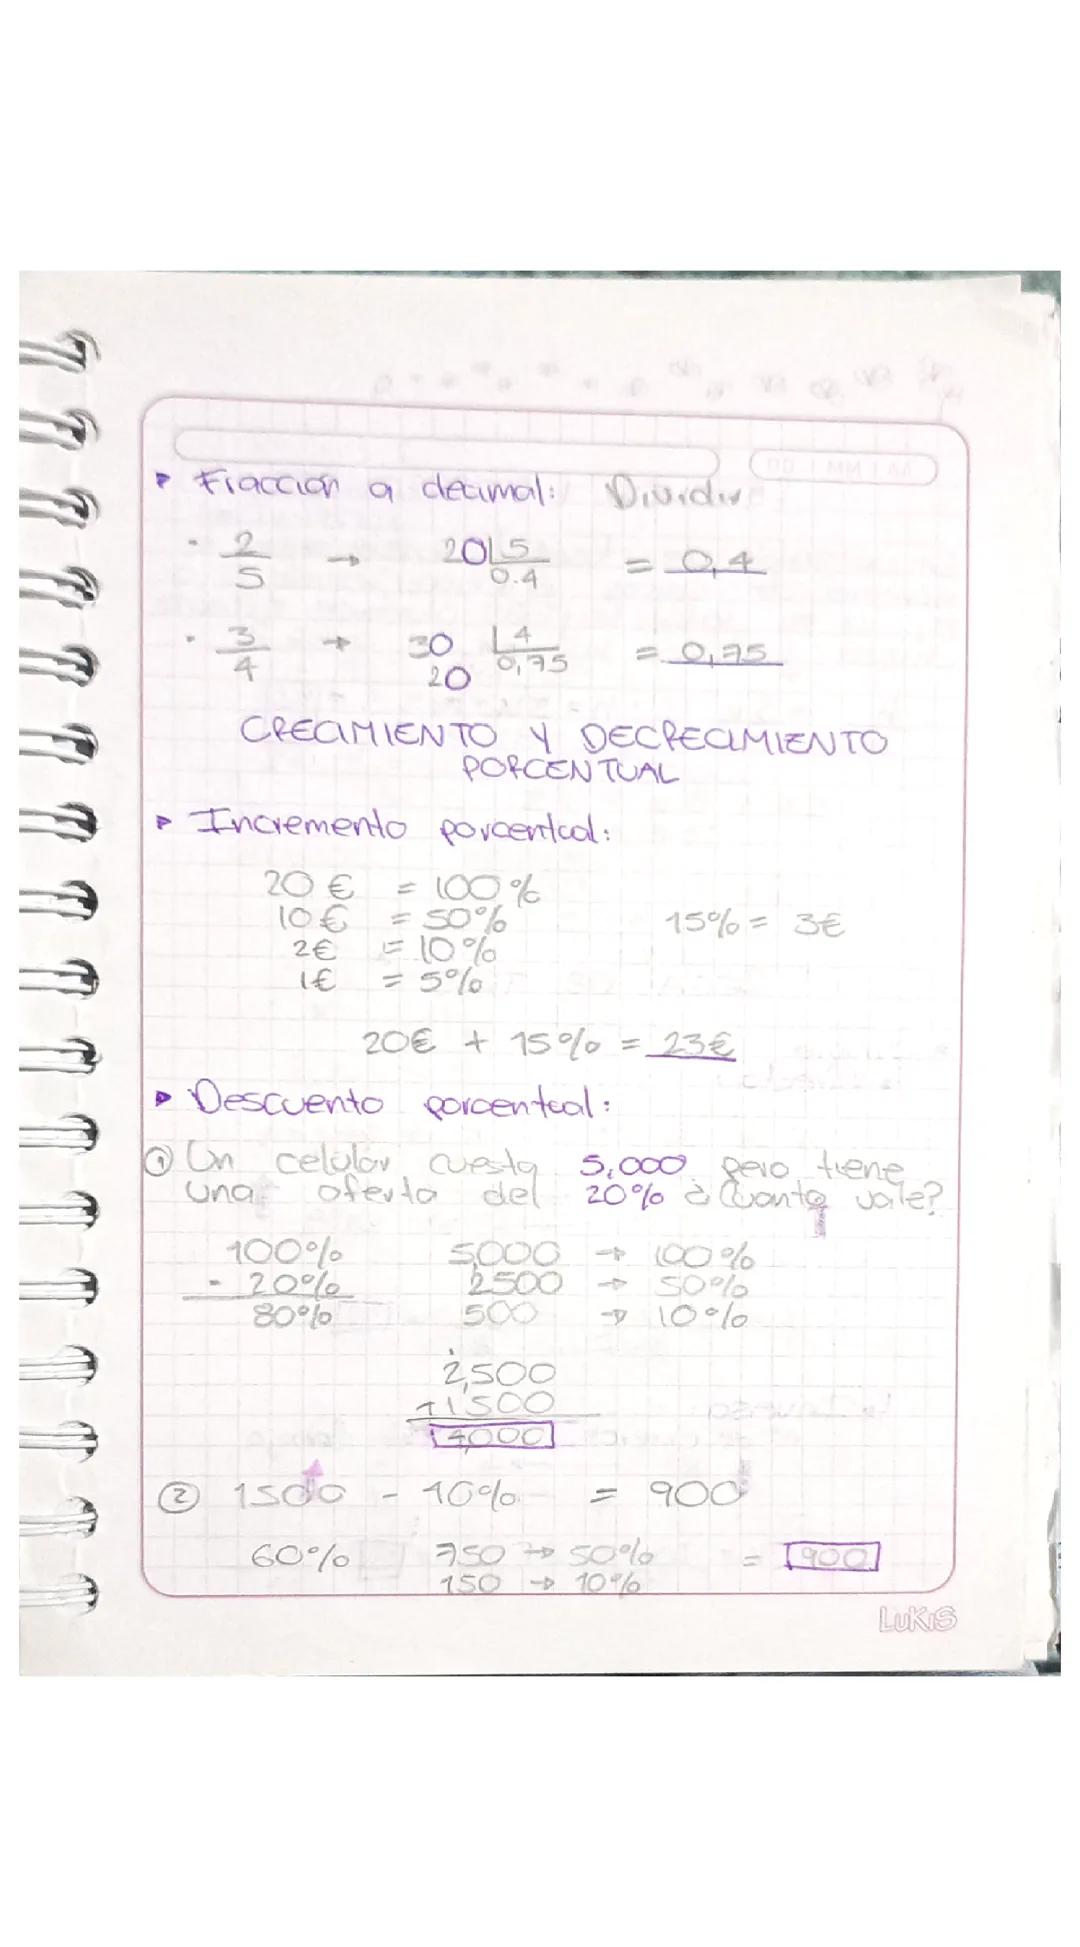 DD | MM | AA
▸ Fracción a decimal: Dividir
· 2/5 → 20 5 0.4 = 0,4
· 3/4 → 30 4 20 0,75 = 0,75
CRECIMIENTO Y DECRECIMIENTO
PORCENTUAL
▸ Incremento porcentual:
20 € = 100 %
10 € = 50%
15% = 3€
2€ = 10%
1€ = 5%
20€ + 15% = 23€
▸ Descuento porcentual:
① Un celular cuesta 5,000 pero tiene
una oferta del 20% ¿Cuanto vale?
100% 5,000 → 100%
- 20% 2500 → 50%
80% 500 → 10%
2,500
+1500
4000
② 1500 - 40% = 900
60% 750 → 50% = 900
150 → 10%
LUKIS